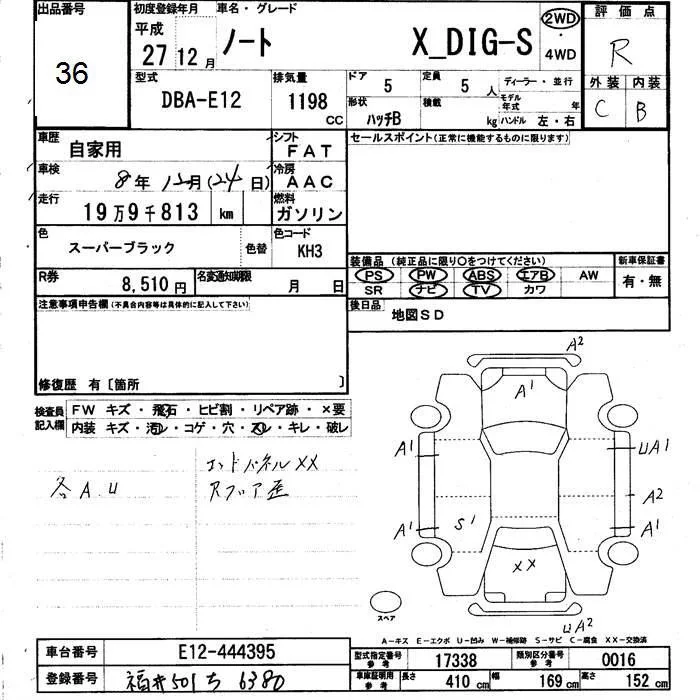 出品番号
36
初度登録年月
平成
27 12 月
車名・グレード
ノート X_DIG-S
2WD
・
4WD
評価点
R
外装 内装
C B
型式
DBA-E12
排気量
1198 CC
ドア 5
定員 5 人
ディーラー・並行
形状 ハッチB
積載 kg
モデル年式 年
ハンドル 左・右
車歴
自家用
シフト
FAT
セールスポイント(正常に機能するものに限ります)
車検
8年 12月(24日)
冷房
AAC
走行
19万9千813 km
燃料
ガソリン
色
スーパーブラック 色替
色コード
KH3
装備品 (純正品に限り○をつけてください)
PS PW ABS エアB AW
SR ナビ TV カワ
新車保証書
有・無
R券
8,510円
名変通知期限
月 日
後日品
地図SD
注意事項申告欄(不具合内容等は具体的に記入して下さい)
修復歴 有〔箇所 〕
検査員
記入欄
FW キズ・飛石・ヒビ割・リペア跡・×要
内装 キズ・汚レ・コゲ・穴・スレ・キレ・破レ
各A.U
エンドパネルXX
Rフロア歪
A2
A1
A1
UA1
A2
A1
A1
S1
XX
UA2
スペア
A-キズ E-エクボ U-凹み W-補修跡 S-サビ C-腐食 XX-交換済
車台番号
E12-444395
登録番号
福井501ち6380
型式指定番号
参考
17338
類別区分番号
参考
0016
車庫証明用
参考
長さ 410 cm
幅 169 cm
高さ 152 cm